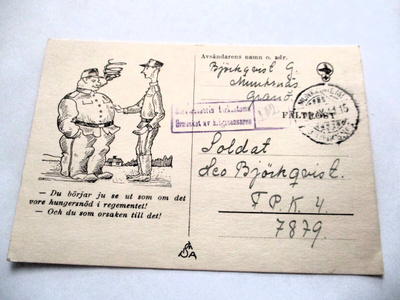 Avsändarens namn o. adr.
Björkqvist G.
Munksnäs
Granö.
FÄLTPOST
Granskat av krigscensuren
Soldat
Leo Björkqvist.
F.P.K. 4
7879.
— Du börjar ju se ut som om det
vore hungersnöd i regementet!
— Och du som orsaken till det!